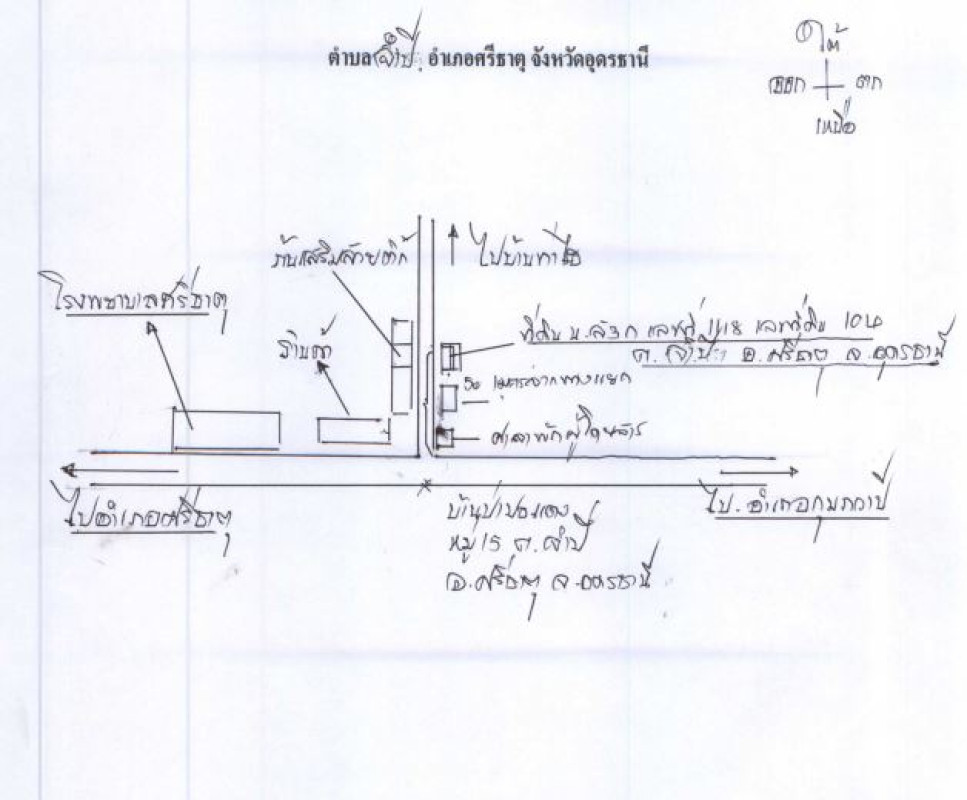 ตำบลจำปี อำเภอศรีธาตุ จังหวัดอุดรธานี
ใต้
ออก ตก
เหนือ
ไปบ้าน
โรงพยาบาลศรีธาตุ
ร้านค้า
ที่ดิน น.ส.3ก เลขที่ 1118 เลขที่ดิน 102
ต.จำปี อ.ศรีธาตุ จ.อุดรธานี
50 เมตรจากทางแยก
ศาลาพักผู้โดยสาร
ไปอำเภอศรีธาตุ
ไป.อำเภอกุมภวาปี
หมู่ 15 ต.จำปี
อ.ศรีธาตุ จ.อุดรธานี